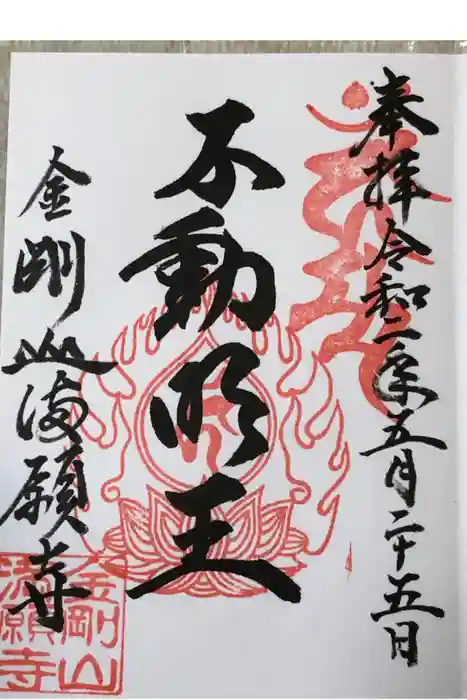 奉拝令和二年五月二十五日
不動明王
金剛山満願寺
金剛山
満願寺